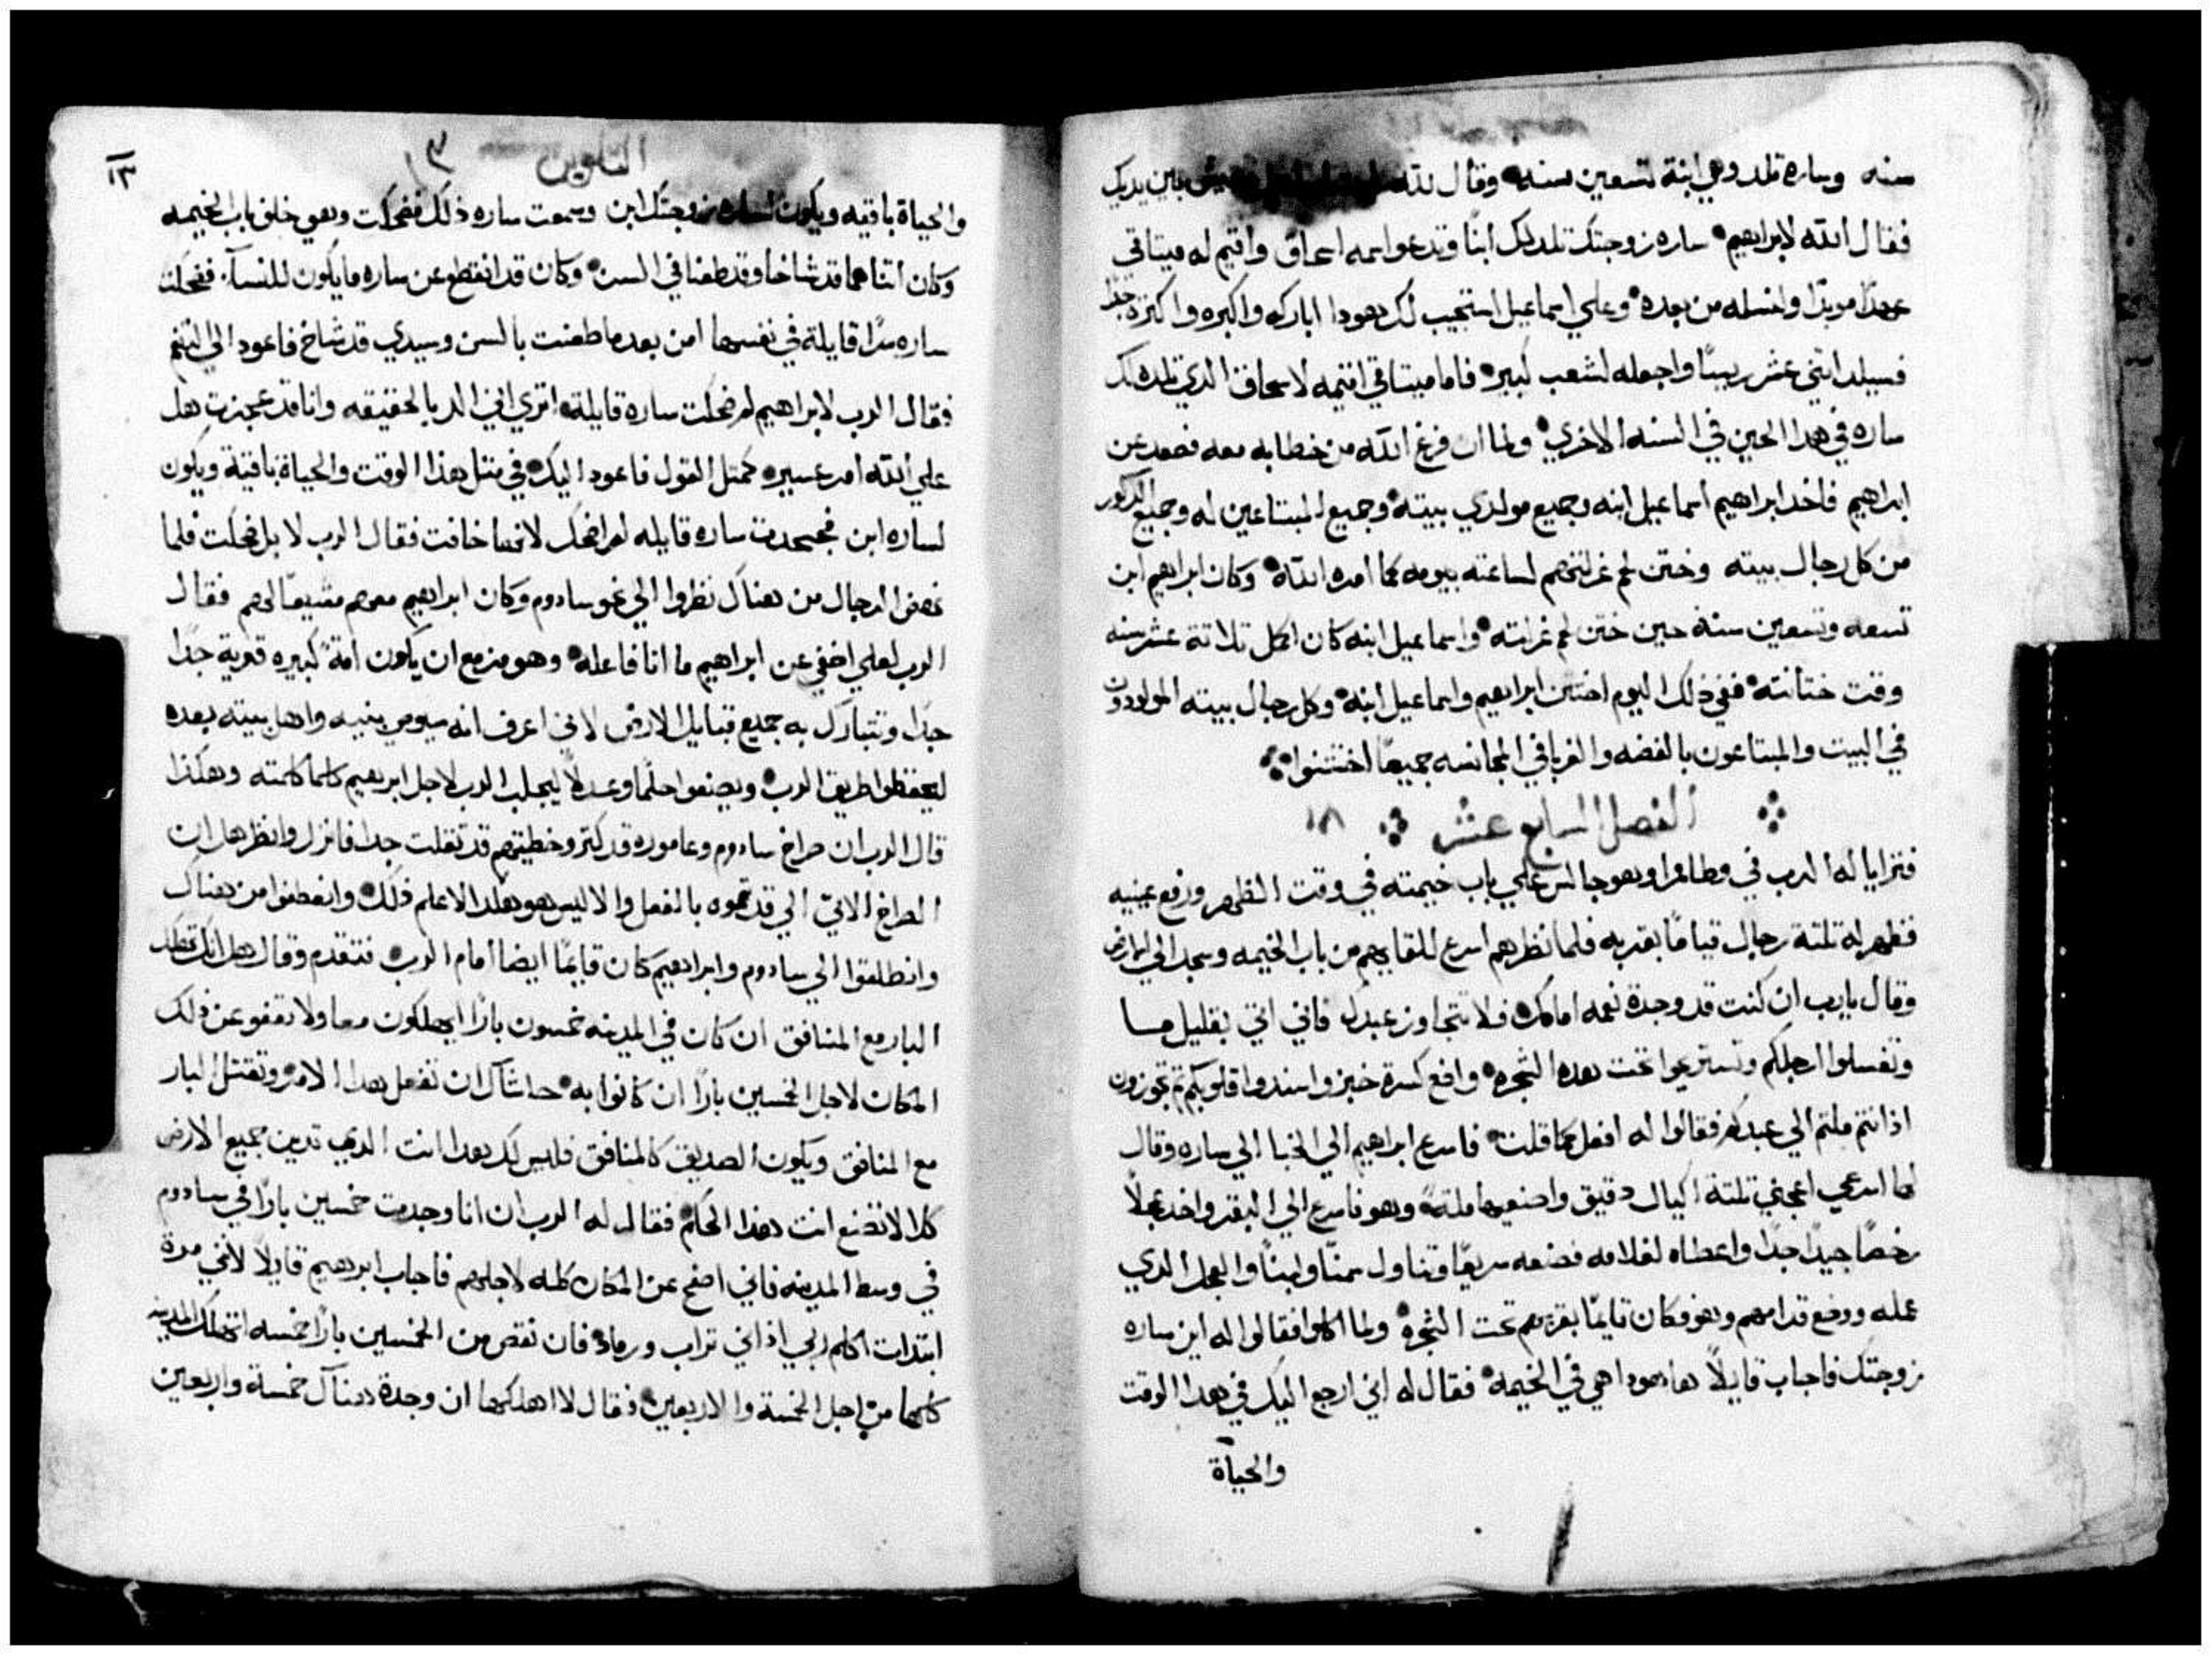 سنه وساره تلد وهي ابنة تسعين سنه وقال لله بين يديك
فقال الله لابراهيم ساره زوجتك تلد لك ابنًا وتدعوا اسمه اسحاق واقيم له ميتاقي
عهدًا موبدًا ولنسله من بعده وعلي اسماعيل استجيب لك هودا اباركه واكبره واكتره جدًا
فسيلد اتني عشر رييسًا واجعله لشعب كبير فاما ميتاقي اقيمه لاسحاق الدي تلده لك
ساره في هدا الحين في السنه الاخري ولما ان فرغ الله من خطابه معه فصعد عن
ابراهيم فاخد ابراهيم اسماعيل ابنه وجميع مولدي بيته وجميع المبتاعين له وجميع الدكور
من كل رجال بيته وختن لحم غرلتهم لساعته بيومه كما امره الله وكان ابراهيم ابن
تسعه وتسعين سنة حين ختن لحم غرلته واسماعيل ابنه كان اكمل تلاتة عشر سنه
وقت ختانته ففي ذلك اليوم اختتن ابراهيم واسماعيل ابنه وكل رجال بيته المولودون
في البيت والمبتاعون بالفضه والغربا في المجانسه جميعًا اختتنوا
الفصل السابع عشر ١٨
فترايا له الرب في وطا ممرا وهو جالس علي باب خيمته في وقت الظهر ورفع عينيه
فظهر له تلتة رجال قيامًا بقربه فلما نظرهم اسرع للقايهم من باب الخيمه وسجد الي الارض
وقال يا رب ان كنت قد وجدة نعمه امامك فلا تتجاوز عبدك فاني اتي بقليل مـا
وتغسلوا ارجلكم وتستريحوا تحت هده الشجره واضع كسرة خبز واسندوا قلوبكم تم تجوزون
اذ انتم ملتم الي عبدكم فقالوا له افعل كما قلت فاسرع ابراهيم الي الخبا الي ساره وقال
لها اسرعي اعجني تلتة اكيال دقيق واصنعيها ملة وهو فاسرع الي البقر واخد عجلًا
رخصًا جيدًا جدًا واعطاه لغلامه فصنعه سريعًا وتناول سمنًا ولبنًا والعجل الدي
عمله ووضع قدامهم وهو فكان قايمًا بقربهم تحت الشجره ولما اكلوا فقالوا له اين ساره
زوجتك فاجاب قايلًا ها هودا هي في الخيمه فقال له اني ارجع اليك في هدا الوقت
والحياة
التكوين ١٣
١٣
والحياة باقيه ويكون لساره زوجتك ابن وسمعت ساره ذلك فضحكت وهي خلف باب الخيمه
وكان اتناهما قد شاخا وقد طعنا في السن وكان قد انقطع عن ساره ما يكون للنسآء فضحكت
ساره سرًا قايلة في نفسها امن بعد ما طعنت بالسن وسيدي قد شاخ فاعود الي التنعم
فقال الرب لابراهيم لم ضحكت ساره قايلة اتري اني الد بالحقيقه وانا قد عجزت هل
علي الله امر عسير كمتل القول فاعود اليك في متل هذا الوقت والحياة باقية ويكون
لساره ابن فجحدت ساره قايله لم اضحك لانها خافت فقال الرب لا بل ضحكت فلما
نهض الرجال من هناك نظروا الي نحو سادوم وكان ابراهيم معهم مشيعًا لهم فقال
الرب لعلي اخفي عن ابراهيم ما انا فاعله وهو مزمع ان يكون امةً كبيره قوية جدًا
جدًا وتتبارك به جميع قبايل الارض لاني اعرف انه سيوصي بنيه واهل بيته بعده
ليحفظوا طريق الرب ويصنعوا حكمًا وعدلًا ليجلب الرب لاجل ابرهيم كلما كلمته وهكذا
قال الرب ان صراخ سادوم وعاموره قد كتر وخطيتهم قد تقلت جدا فانزل وانظر هل ان
الصراخ الاتي الي قد تموه بالفعل والا ليس هو هكدا لاعلم ذلك وانعطفوا من هناك
وانطلقوا الي سادوم وابراهيم كان قايمًا ايضا امام الرب فتقدم وقال هل انك تهلك
البار مع المنافق ان كان في المدينه خمسون بارًا ايهلكون معا ولا تعفو عن ذلك
المكان لاجل الخمسين بارًا ان كانوا به حاشاك ان تفعل هدا الامر وتقتل البار
مع المنافق ويكون الصديق كالمنافق فليس لك هدا انت الدي تدين جميع الارض
كلا لا تصنع انت هذا الحكم فقال له الرب ان انا وجدت خمسين بارًا في سادوم
في وسط المدينه فاني اصفح عن المكان كله لاجلهم فاجاب ابرهيم قايلًا لاني مرة
ابتدات اكلم ربي اذ اني تراب ورماد فان نقص من الخمسين بارًا خمسه اتهلك المدينه
كلها من اجل الخمسة والاربعين فقال لا اهلكها ان وجدة هناك خمسة واربعين